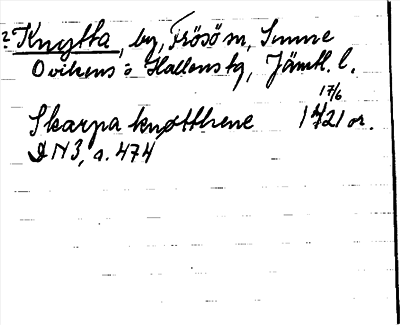 ? Knytta, by, Frösö sn, Sunne
Ovikens o Hallens tg, Jämtl. l.
17/6
Skarpa knøtthene 1421 or.
DN3, s. 474